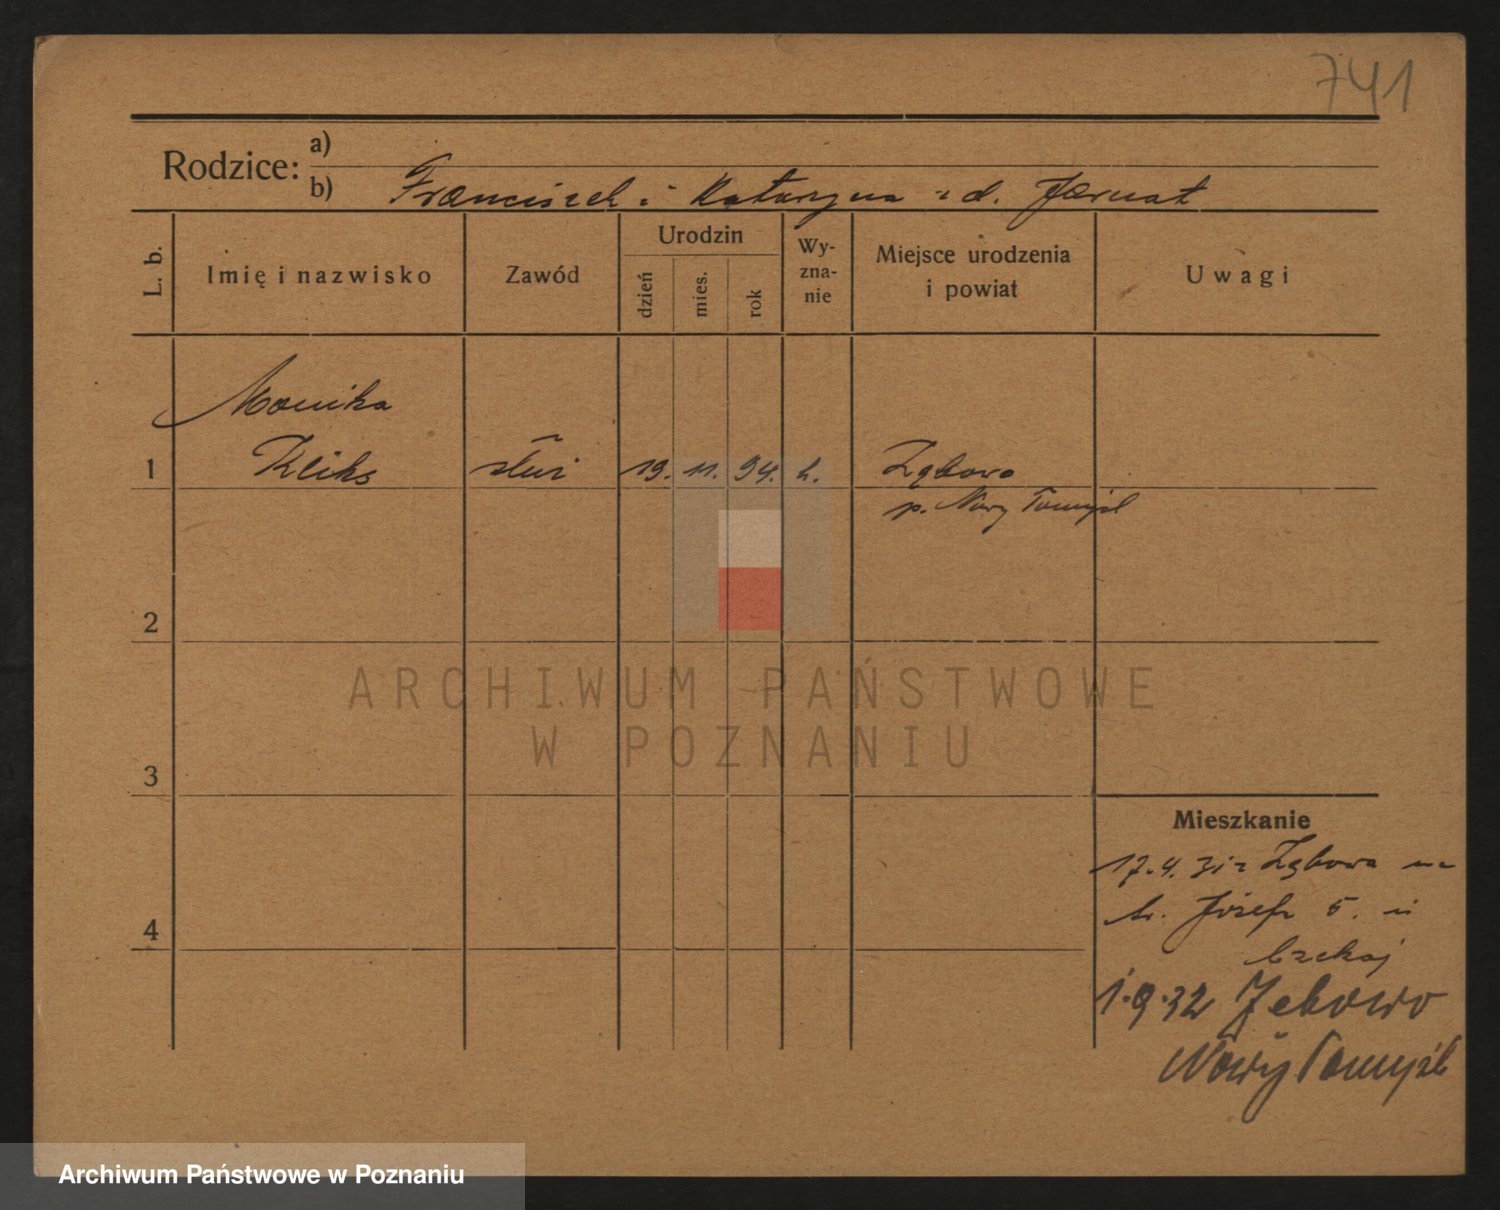 741
Rodzice: a)
b) Franciszek i Katarzyna z d. Jarnat
L. b.
Imię i nazwisko
Zawód
Urodzin
dzień
mies.
rok
Wy-
zna-
nie
Miejsce urodzenia
i powiat
Uwagi
Monika
1 Kliks służ 19. 11. 94. k. Zębowo
p. Nowy Tomyśl
2
3
4
Mieszkanie
17.4.31 z Zębowa na
Józefa 5.
1.9.32 Zębowo
Nowy Tomyśl
ARCHIWUM PAŃSTWOWE
W POZNANIU
Archiwum Państwowe w Poznaniu